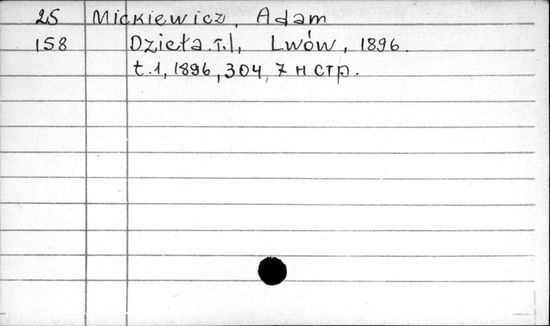 25 Mickiewicz, Adam
158 Dzieła. T.1, Lwów, 1896.
t.1, 1896, 304, 7 н стр.